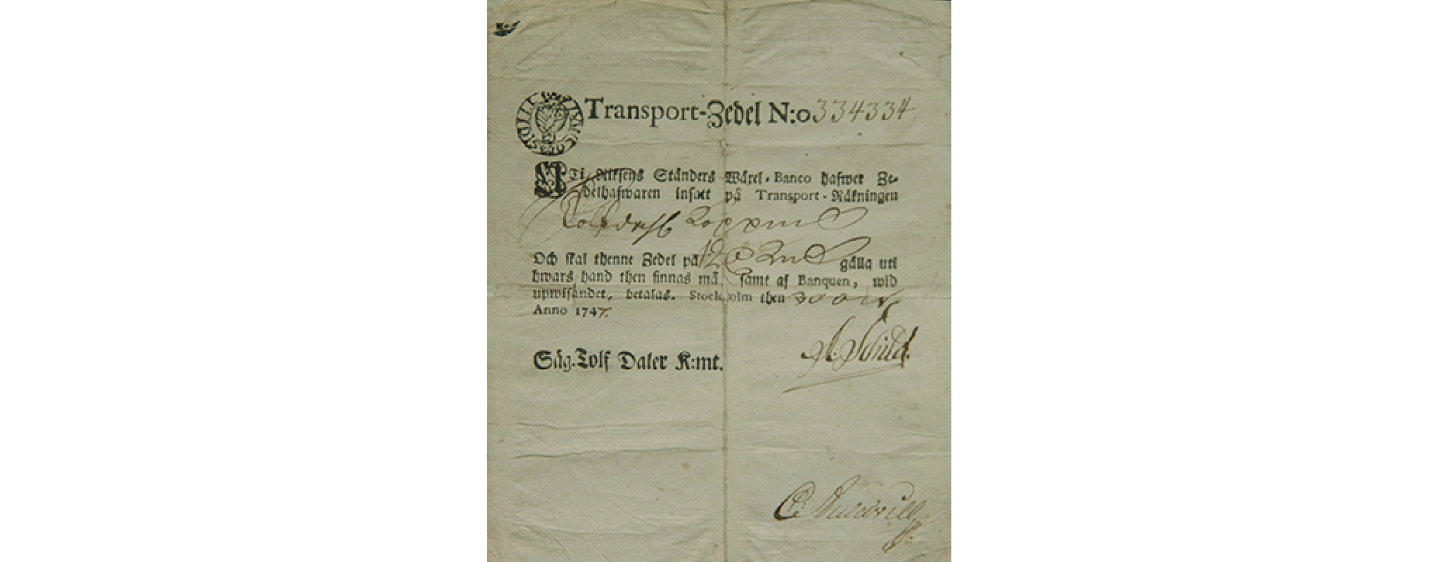 Transport-Zedel N:o 334334
UTi Riksens Ständers Wäxel-Banco hafwer Ze-
delhafwaren insatt på Transport-Räkningen
Och skal thenne Zedel på 12 gälla uti
hwars hand then finnas må samt af Banquen, wid
upwisandet, betalas. Stockholm then
Anno 1747.
Säg. Tolf Daler K:mt.